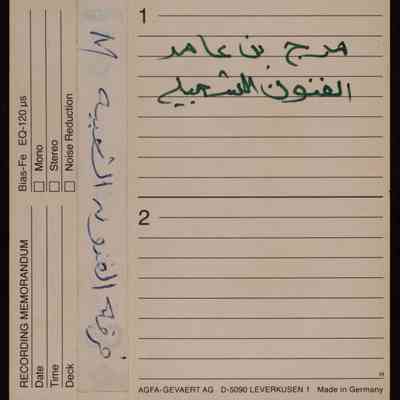 1
مرج بن عامر
الفنون الشعبية
2
RECORDING MEMORANDUM
Bias-Fe EQ-120 µs
Date
Mono
Time
Stereo
Deck
Noise Reduction
فرقة الفنون الشعبية M
AGFA-GEVAERT AG D-5090 LEVERKUSEN 1 Made in Germany